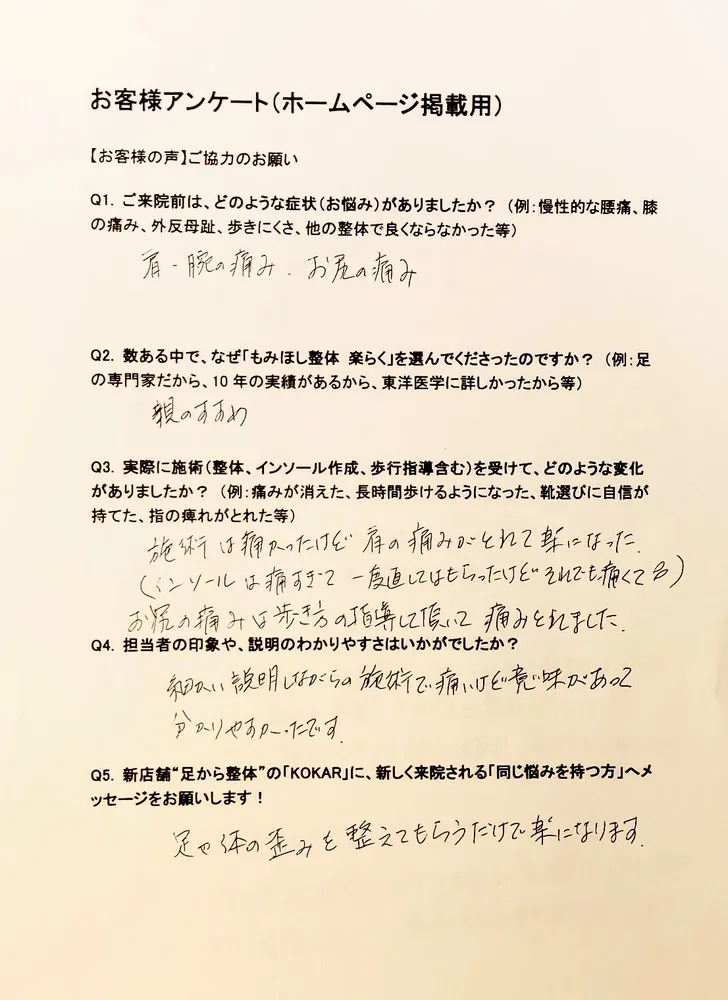 お客様アンケート（ホームページ掲載用）
【お客様の声】ご協力のお願い
Q1. ご来院前は、どのような症状（お悩み）がありましたか？ （例：慢性的な腰痛、膝
の痛み、外反母趾、歩きにくさ、他の整体で良くならなかった等）
肩・腕の痛み、お尻の痛み
Q2. 数ある中で、なぜ「もみほし整体 楽らく」を選んでくださったのですか？ （例：足
の専門家だから、10年の実績があるから、東洋医学に詳しかったから等）
親のすすめ
Q3. 実際に施術（整体、インソール作成、歩行指導含む）を受けて、どのような変化
がありましたか？ （例：痛みが消えた、長時間歩けるようになった、靴選びに自信が
持てた、指の痺れがとれた等）
施術は痛かったけど肩の痛みがとれて楽になった.
(インソールは痛すぎて一度直してはもらったけどそれでも痛くて)
お尻の痛みは歩き方の指導して頂いて痛みとれました.
Q4. 担当者の印象や、説明のわかりやすさはいかがでしたか？
細かい説明しながらの施術で痛いけど意味があって
分かりやすかったです.
Q5. 新店舗“足から整体”の「KOKAR」に、新しく来院される「同じ悩みを持つ方」へメ
ッセージをお願いします！
足や体の歪みを整えてもらうだけで楽になります.